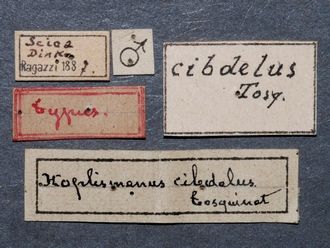 Scioa
Dinko
Ragazzi 188
♂
cibdelus
Tosq.
Typus.
Hoplismenus cibdelus
Tosquinet